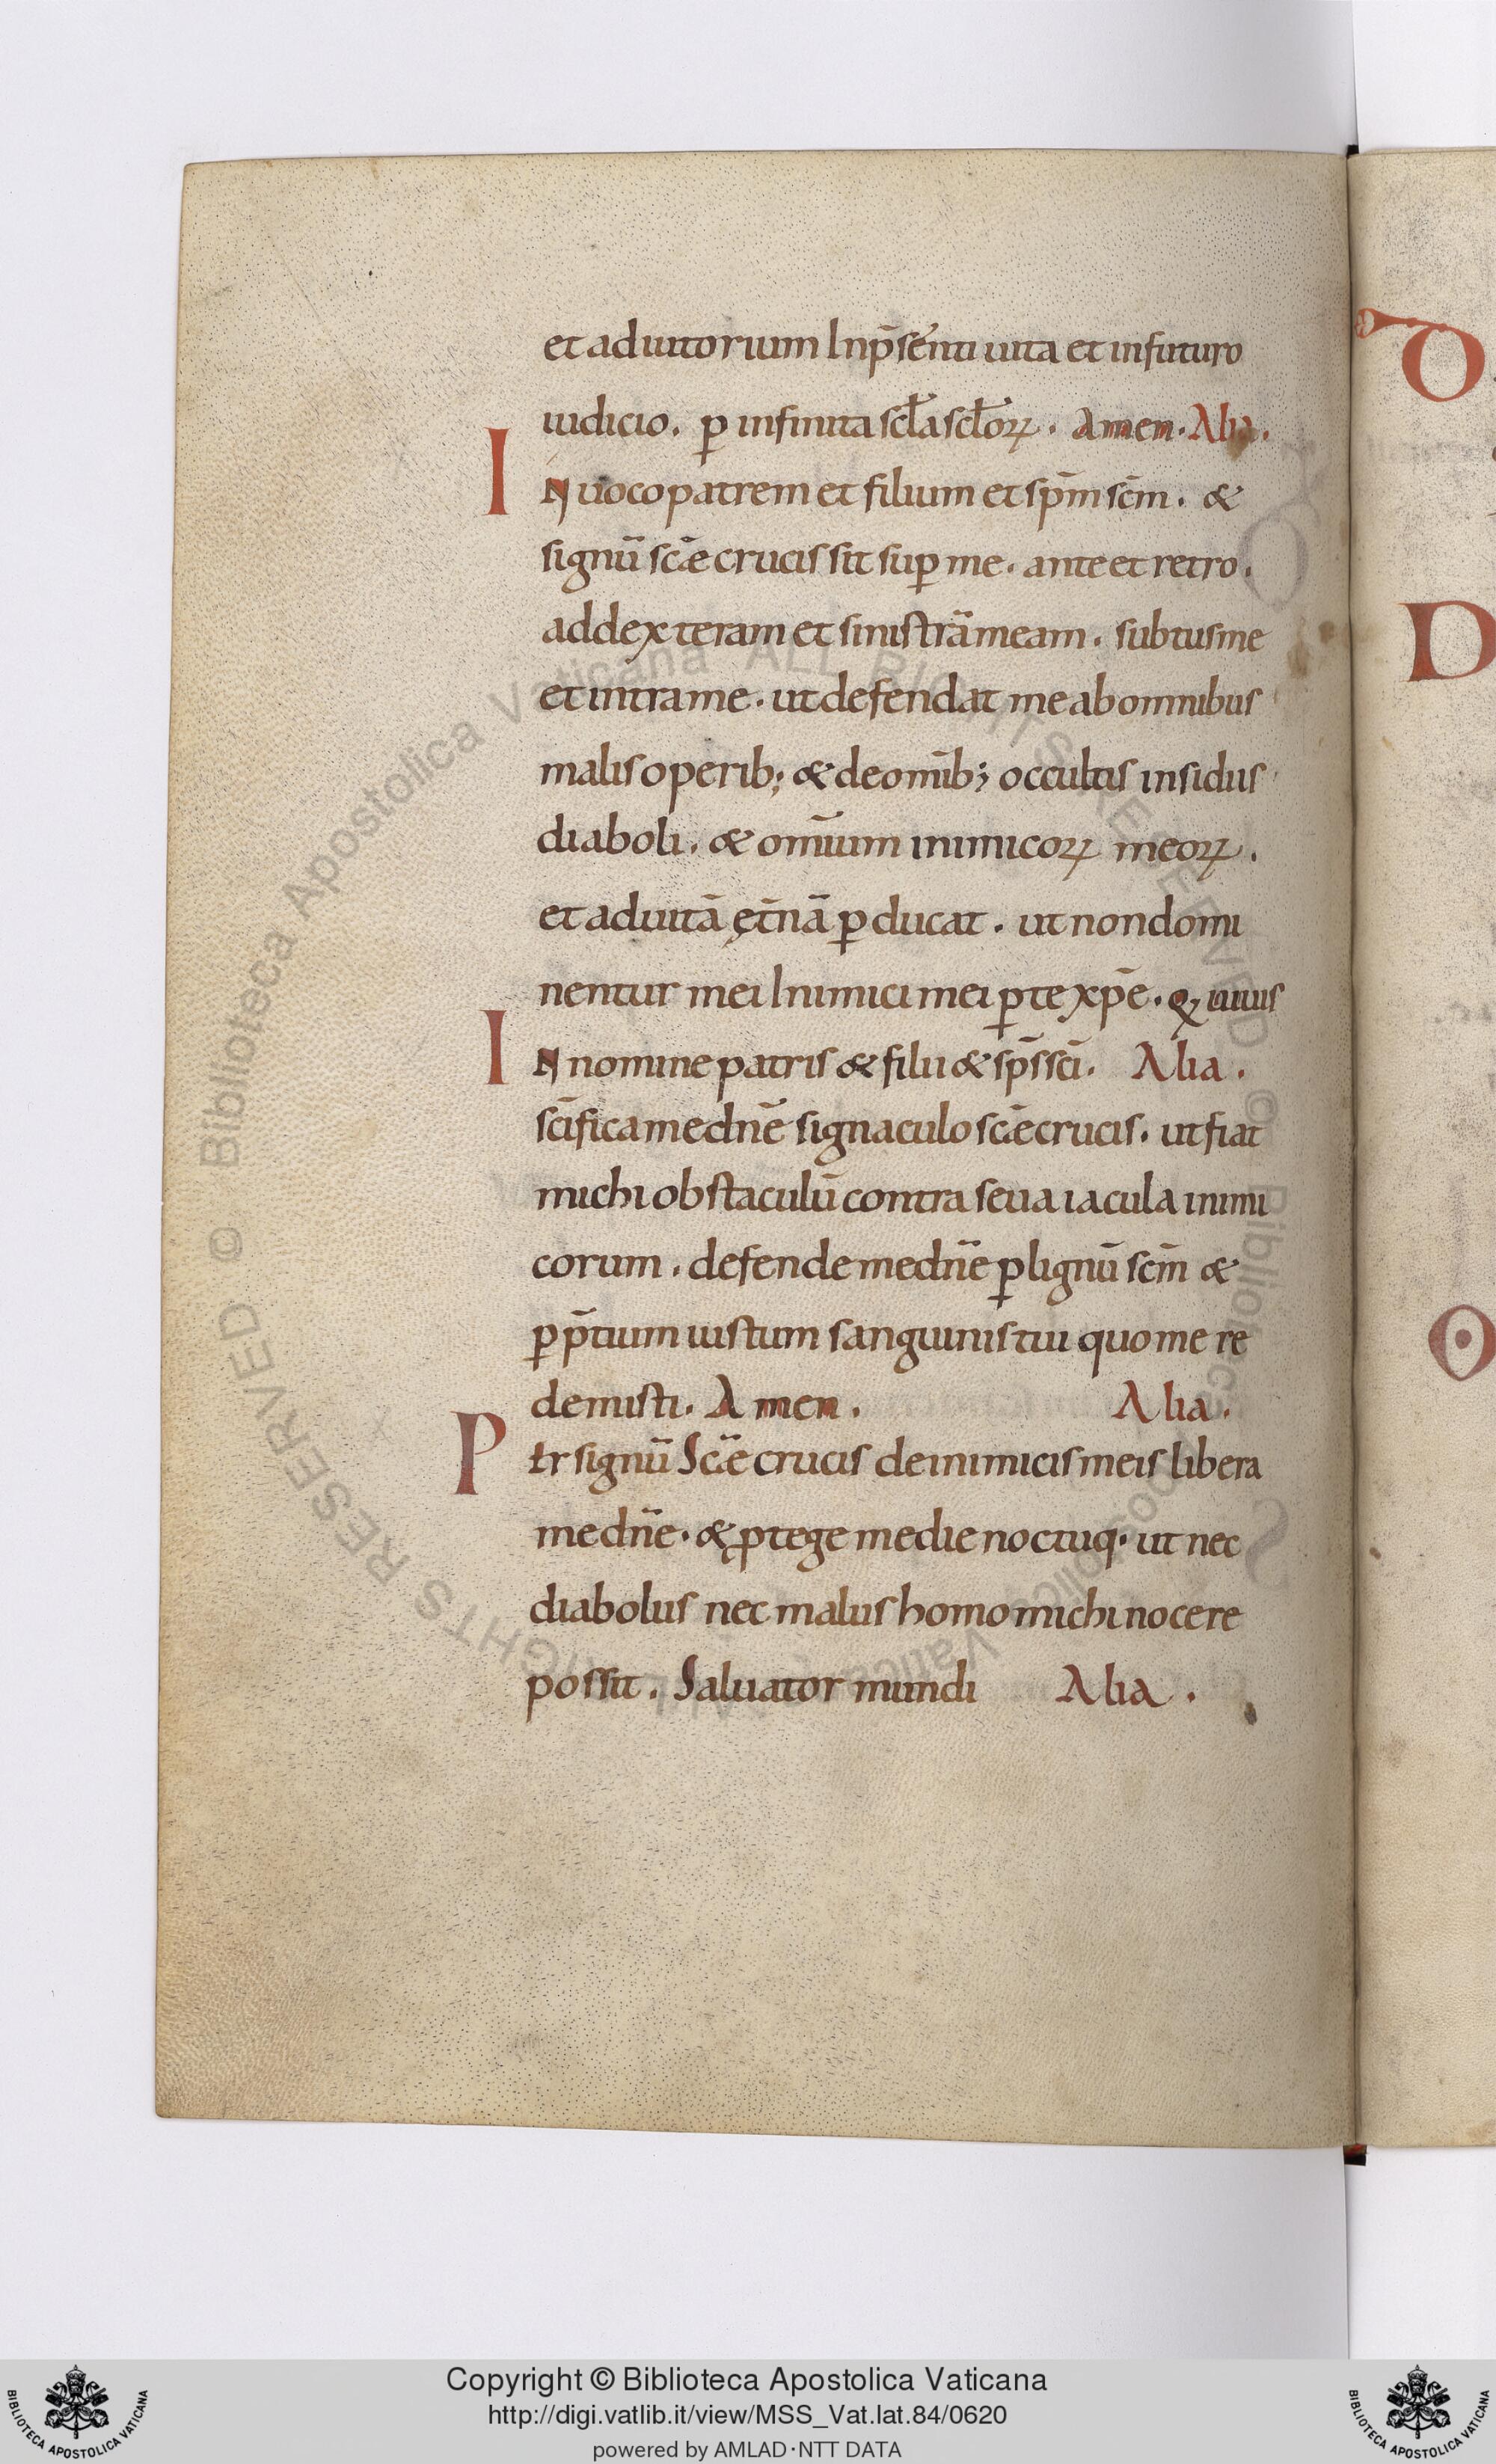 et adiutorium In p̄senti uita et in futuro
iudicio. ꝑ infinita sc̄la sc̄loꝝ. Amen. Alia.
IN uoco patrem et filium et sp̄m sc̄m. &
signū sc̄æ crucis sit suꝑ me. ante et retro.
ad dexteram et sinistrā meam. subtus me
et intra me. ut defendat me ab omnibus
malis operib; & de om̄ib; occultis insidiis
diaboli. & om̄ium inimicoꝝ meoꝝ.
et ad uitā ęt̄nā ꝑducat. ut non domi
nentur mei Inimici mei ꝑ te xp̄e. Qͥ uiuis
IN nomine patris & filii & sp̄s sc̄i. Alia.
sc̄ifica me dn̄e signaculo sc̄æ crucis. ut fiat
michi obstaculū contra seua iacula inimi
corum. defende me dn̄e ꝑ lignū sc̄m &
ꝑ p̄tium iustum sanguinis tui quo me re
demisti. Amen. Alia.
Ptr signū Sc̄æ crucis de inimicis meis libera
me dn̄e. & ꝓtege me die noctuq. ut nec
diabolus nec malus homo michi nocere
possit. Saluator mundi Alia.
D
D
O
© Biblioteca Apostolica Vaticana ALL RIGHTS RESERVED © Biblioteca Apostolica Vaticana ALL RIGHTS RESERVED
Copyright © Biblioteca Apostolica Vaticana
http://digi.vatlib.it/view/MSS_Vat.lat.84/0620
powered by AMLAD·NTT DATA
BIBLIOTECA APOSTOLICA VATICANA
BIBLIOTECA APOSTOLICA VATICANA